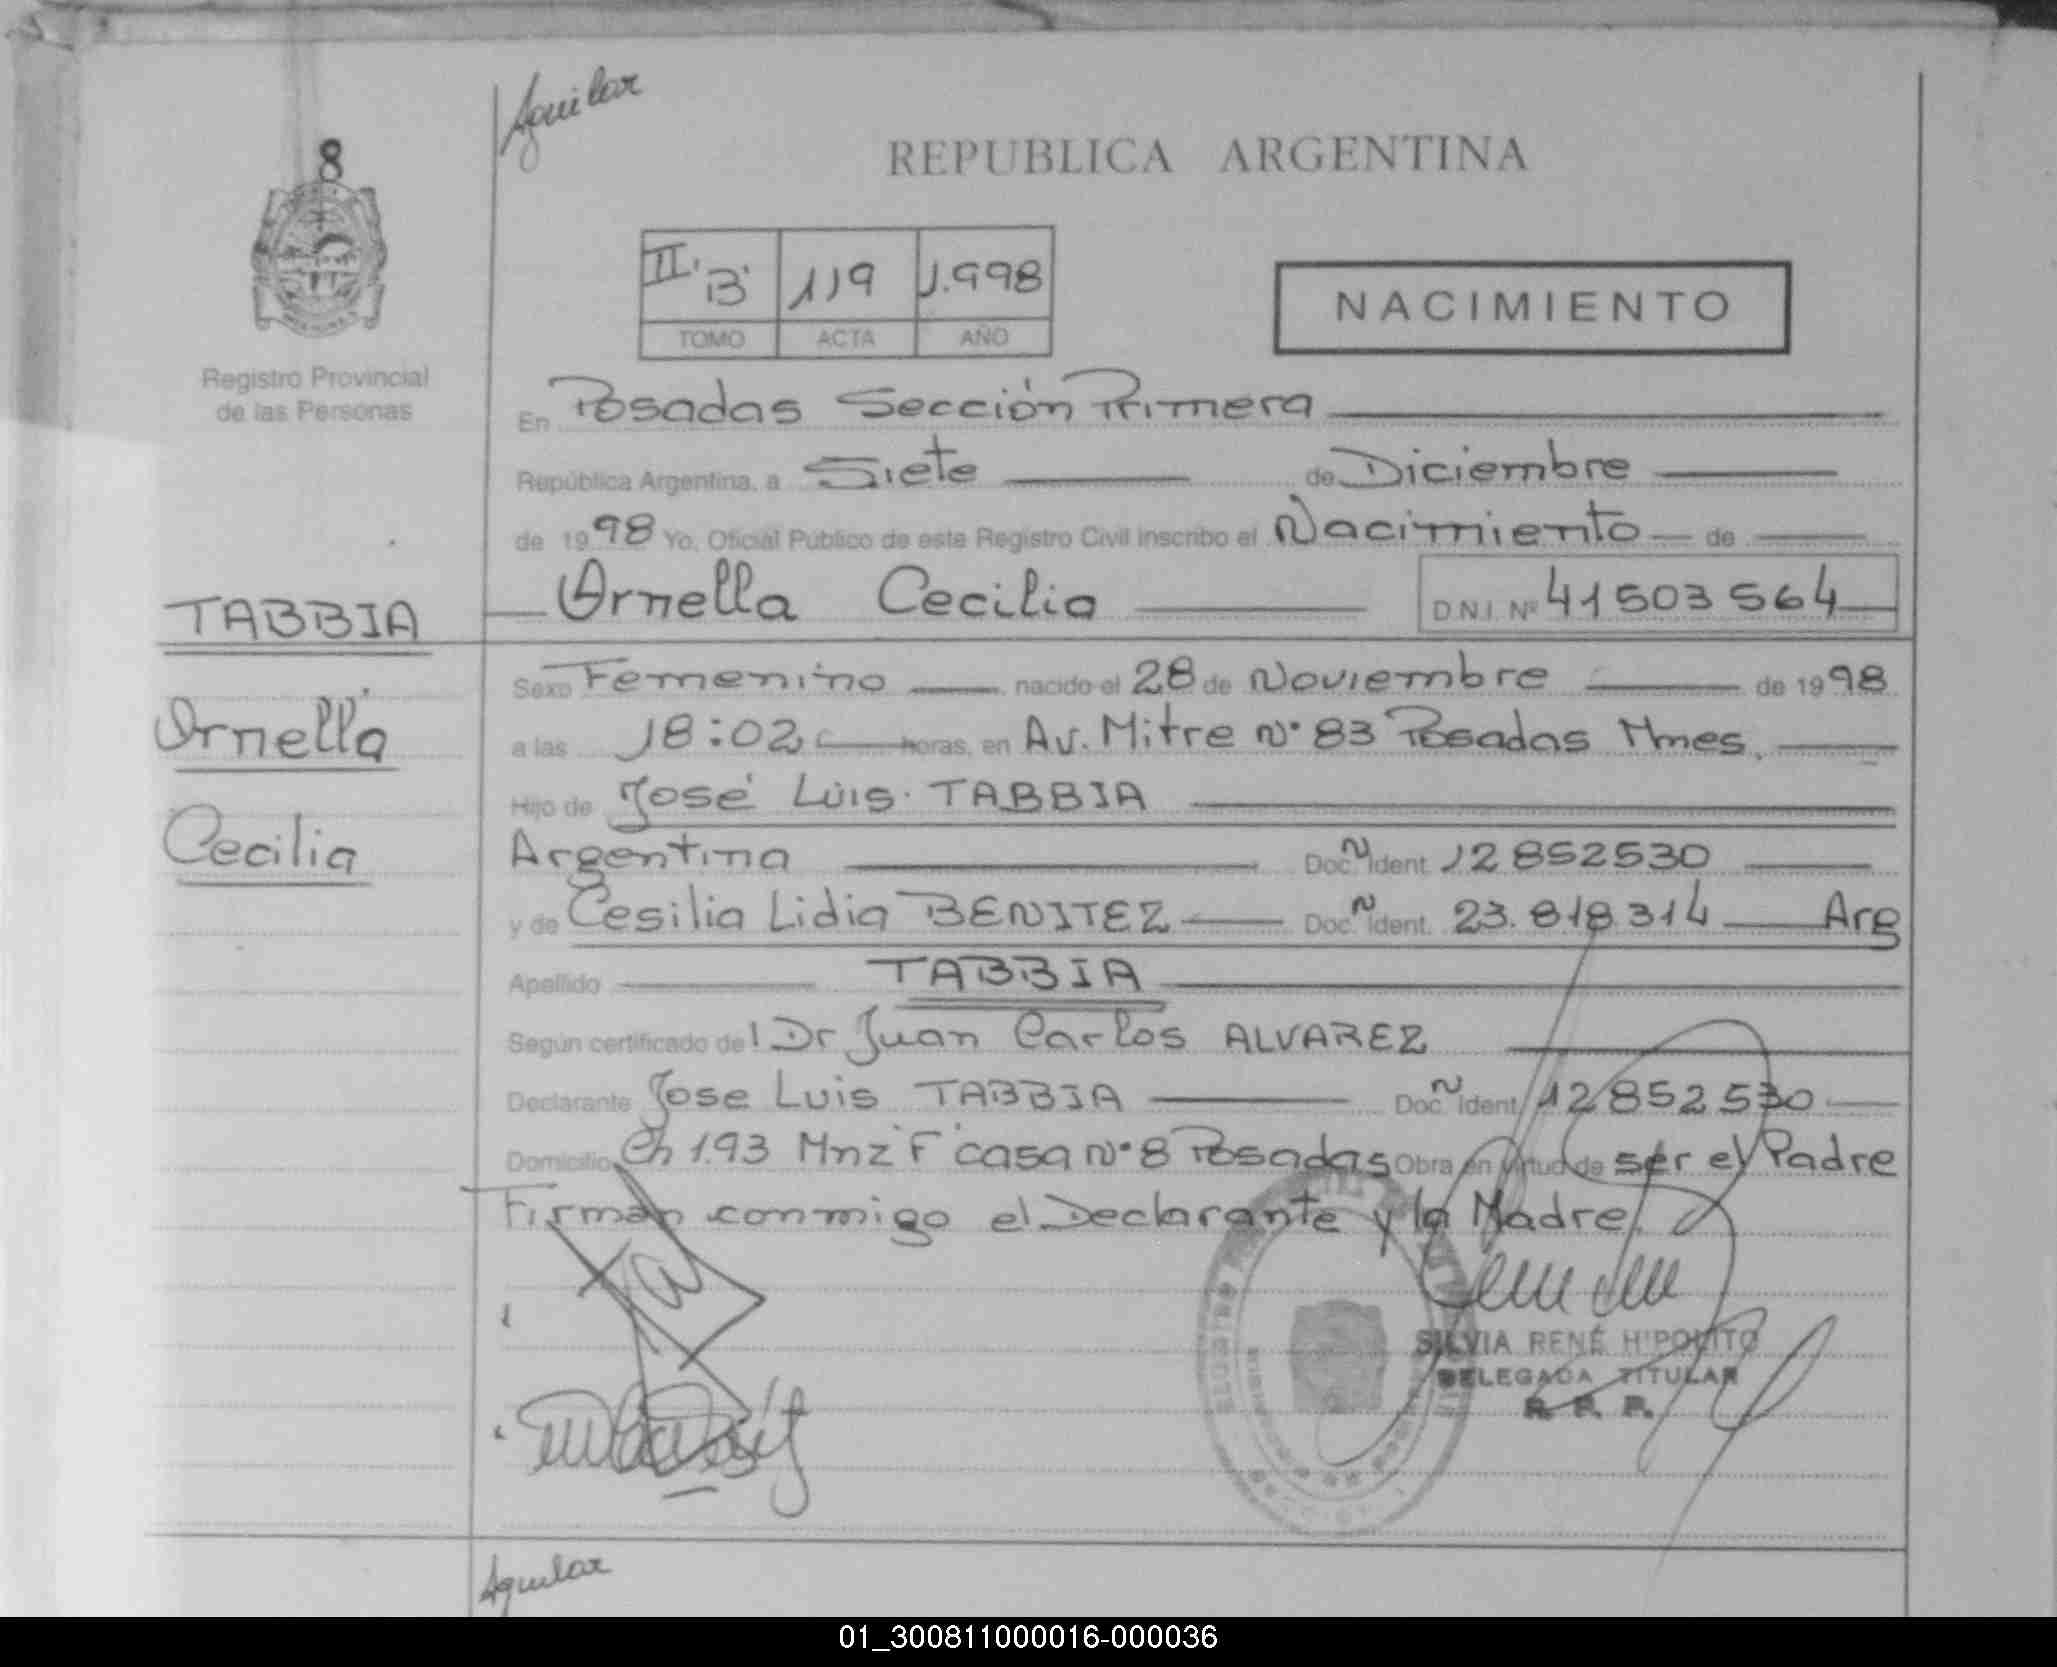 Aguilar
8
REPUBLICA ARGENTINA
II. "B" 119 1.998
TOMO ACTA AÑO
NACIMIENTO
Registro Provincial
de las Personas
En Posadas Sección Primera
República Argentina, a Siete de Diciembre
de 1998 Yo, Oficial Público de este Registro Civil inscribo el Nacimiento de
Ornella Cecilia D.N.I. Nº 41503564
TABBIA
Ornella
Cecilia
Sexo Femenino nacido el 28 de Noviembre de 1998
a las 18:02 horas, en Av. Mitre Nº 83 Posadas Mnes.
Hijo de José Luis TABBIA
Argentina Doc. N Ident. 12852530
y de Cesilia Lidia BENITEZ Doc. N Ident. 23.818.314 Arg
Apellido TABBIA
Según certificado del Dr Juan Carlos ALVAREZ
Declarante Jose Luis TABBIA Doc. N Ident. 12852530
Domicilio Ch 193 Mnz "F" casa Nº 8 Posadas Obra en virtud de ser el Padre
Firman conmigo el Declarante y la Madre.
SILVIA RENÉ HIPOLITO
DELEGADA TITULAR
R. P. P.
Aguilar
01_300811000016-000036